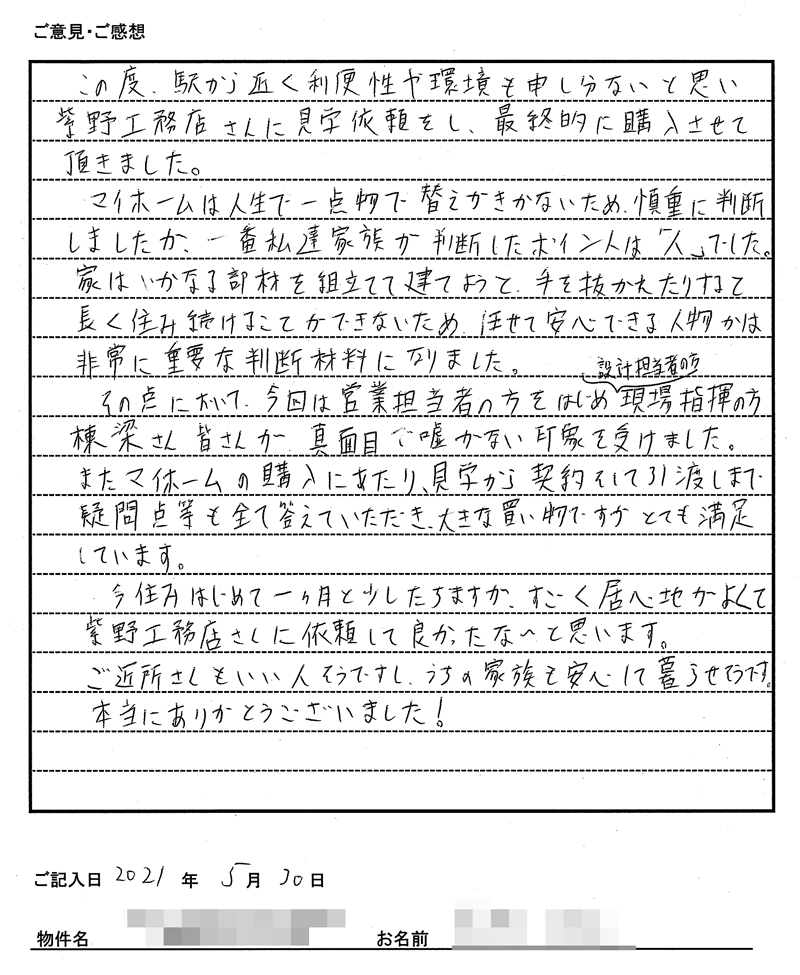 ご意見・ご感想
この度、駅から近く利便性や環境も申し分ないと思い
紫野工務店さんに見学依頼をし、最終的に購入させて
頂きました。
マイホームは人生で一点物で替えがきかないため、慎重に判断
しましたが、一番私達家族が判断したポイントは「人」でした。
家はいかなる部材を組立てて建てようと、手を抜かれたりすると
長く住み続けることができないため、任せて安心できる人物かは
非常に重要な判断材料になりました。
設計担当者の方
その点において、今回は営業担当者の方をはじめ現場指揮の方
棟梁さん皆さんが、真面目で嘘がない印象を受けました。
またマイホームの購入にあたり、見学から契約そして引渡しまで
疑問点等も全て答えていただき、大きな買い物ですが とても満足
しています。
今住みはじめて一ヶ月と少したちますが、すごく居心地がよくて
紫野工務店さんに依頼して良かったな〜と思います。
ご近所さんもいい人そうですし、うちの家族も安心して暮らせそうです。
本当にありがとうございました!
ご記入日 2021 年 5月 30日
物件名 お名前